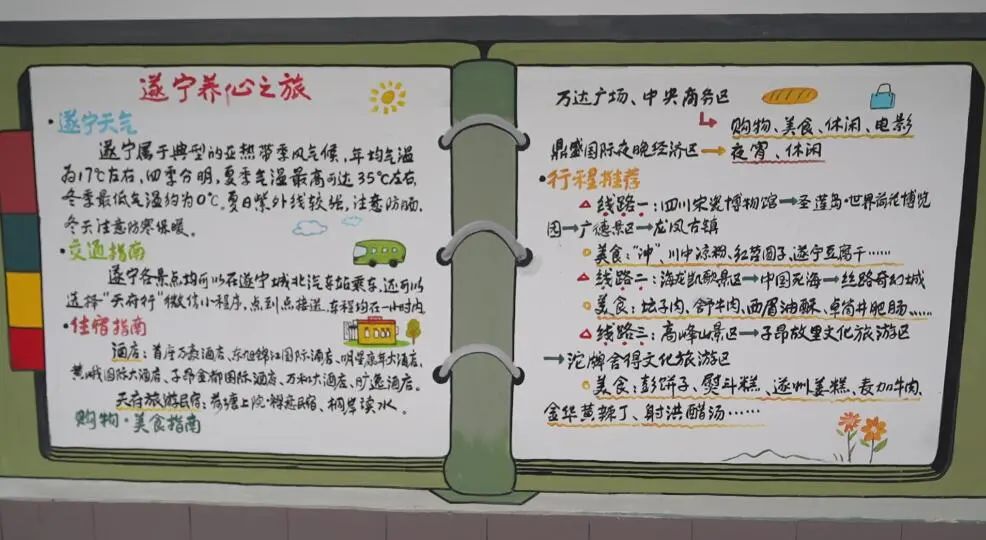 遂宁养心之旅
·遂宁天气
遂宁属于典型的亚热带季风气候，年均气温
为17℃左右，四季分明，夏季气温最高可达35℃左右，
冬季最低气温约为0℃。夏日紫外线较强，注意防晒，
冬天注意防寒保暖。
·交通指南
遂宁各景点均可以在遂宁城北汽车站乘车，还可以
选择"天府行"微信小程序，点到点接送，车程均在一小时内
·住宿指南
酒店：首座万豪酒店、东旭锦江国际酒店、明星康年大酒店、
黄峨国际大酒店、子昂金都国际酒店、万和大酒店、旷逸酒店。
天府旅游民宿：荷塘上院·禅意民宿、桐叟读水。
购物·美食指南
万达广场、中央商务区
购物、美食、休闲、电影
鼎盛国际夜晚经济区→夜宵、休闲
·行程推荐
线路一：四川宋瓷博物馆→圣莲岛·世界荷花博览
园→广德景区→龙凤古镇
美食："冲"、川中凉粉、红苕圆子、遂宁豆腐干……
线路二：海龙凯歌景区→中国死海→丝路奇幻城
美食：坛子肉、舒牛肉、西眉油酥、卓筒井肥肠……
线路三：高峰山景区→子昂故里文化旅游区
→沱牌舍得文化旅游区
美食：彭饼子、熨斗糕、遂州姜糕、麦加牛肉、
金华黄辣丁、射洪醋汤……